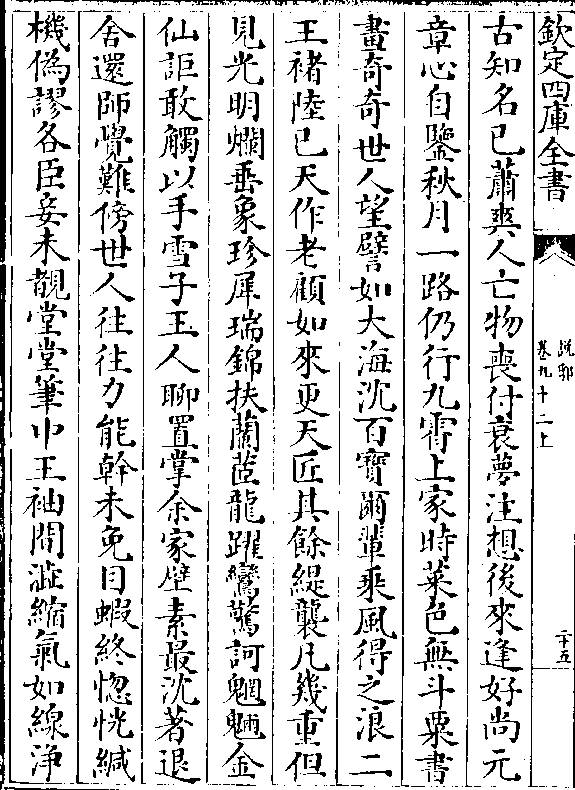 欽定四庫全書
說郛
卷九十二上
二十五
古知名已蕭爽人亡物喪付衰夢注想後來逢好尚元
章心自鑒秋月一路仍行九霄上家時菜色無斗粟書
畫奇奇世人望譬如大海沈百寶爾輩乘風得之浪二
王褚陸已天作老顧如來更天匠其餘緹襲凡幾重但
見光明爛垂象珍犀瑞錦扶蘭茝龍躍鸞驚訶魍魎金
仙詎敢觸以手雪子玉人聊置掌余家壁素最沈著退
舍還師覺難傍世人往往力能幹未免目蝦終惚恍緘
機偽謬各臣妾未覩堂堂筆中王袖間澁縮氣如線浄